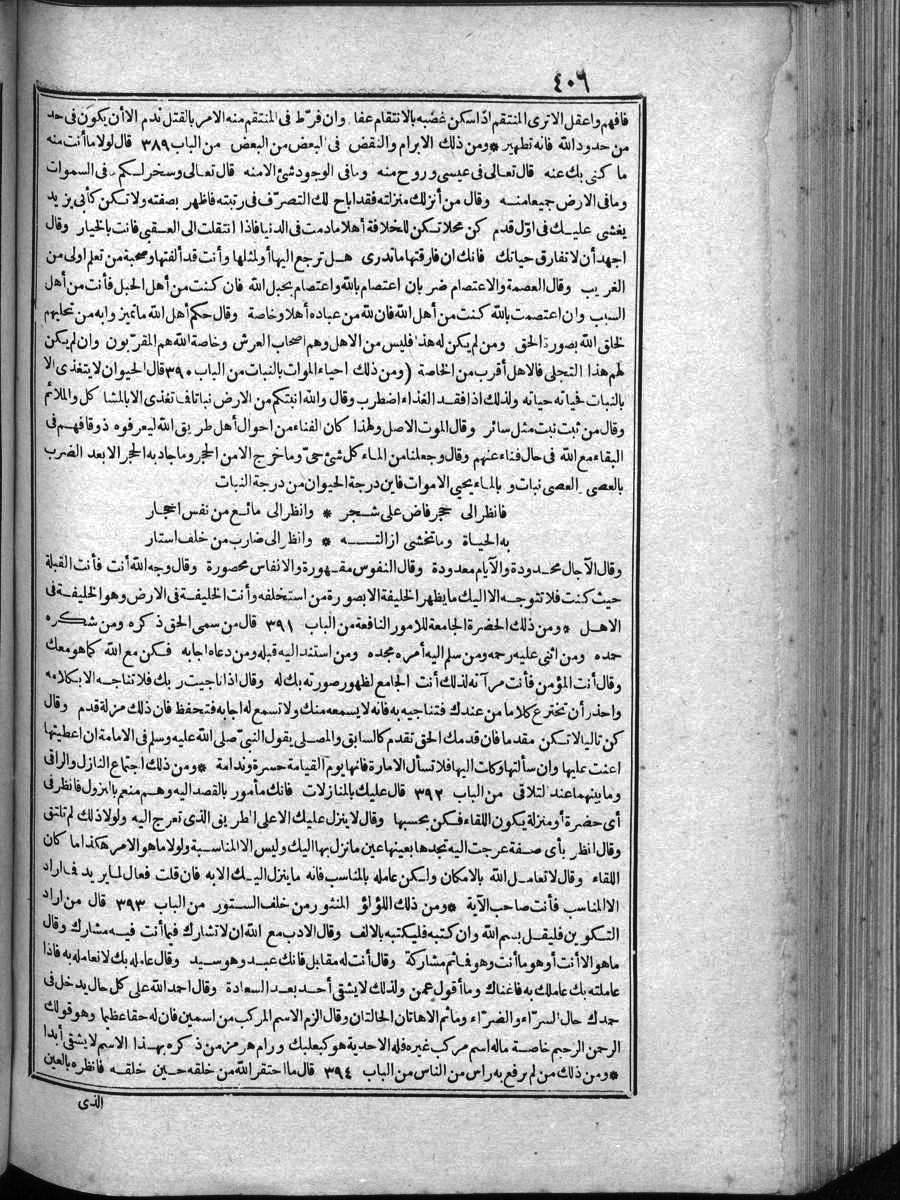 ٤٠٦
فافهم واعقل الا ترى المنتقم اذا سكن غضبه بالانتقام عفا وان فرّط فى المنتقم منه الامر بالقتل ندم الا أن يكون فى حد
من حدود الله فانه تطهير * ومن ذلك الابرام والنقض فى البعض من البعض من الباب ٣٨٩ قال لولا ما أنت منه
ما كنى بك عنه قال تعالى فى عيسى وروح منه وما فى الوجود شئ الا منه قال تعالى وسخر لكم ما فى السموات
وما فى الارض جميعا منه وقال من أنزلك منزلته فقد اباح لك التصرّف فى رتبته فاظهر بصفته ولا تكن كأبى يزيد
يغشى عليك فى اوّل قدم كن محلا تكن للخلافة أهلا ما دمت فى الدنيا فاذا انتقلت الى العقبى فانت بالخيار وقال
اجهد أن لا تفارق حياتك فانك ان فارقتها ما تدرى هل ترجع اليها أو لمثلها وأنت قد ألفتها وصحبة من تعلم اولى من
الغريب وقال العصمة والاعتصام ضربان اعتصام بالله واعتصام بحبل الله فان كنت من أهل الحبل فأنت من أهل
السبب وان اعتصمت بالله كنت من أهل الله فان لله من عباده أهلا وخاصة وقال حكم أهل الله ما تميزوا به من تحليهم
لخلق الله بصورة الحق ومن لم يكن له هذا فليس من الاهل وهم اصحاب العرش وخاصة الله هم المقرّبون وان لم يكن
لهم هذا التجلى فالاهل أقرب من الخاصة (ومن ذلك احياء الموات بالنبات من الباب ٣٩٠ قال الحيوان لا يتغذى الا
بالنبات فحياته حياته ولذلك اذا فقد الغذاء اضطرب وقال والله انبتكم من الارض نباتا فما تغذى الا بالمشاكل والملائم
وقال من ثبت نبت مثل سائر وقال الموت الاصل ولهذا كان الفناء من احوال أهل طريق الله ليعرفوه ذوقا فهم فى
البقاء مع الله فى حال فناء عنهم وقال وجعلنا من الماء كل شئ حىّ وما خرج الا من الحجر وما جاد به الحجر الا بعد الضرب
بالعصى العصى نبات وبالماء يحيى الاموات فاين درجة الحيوان من درجة النبات
فانظر الى حجر فاض على شجر * وانظر الى مائع من نفس احجار
به الحياة وما تخشى ازالته * وانظر الى ضارب من خلف استار
وقال الآجال محدودة والايام معدودة وقال النفوس مقهورة والانفاس محصورة وقال وجه الله أنت فأنت القبلة
حيث كنت فلا تتوجه الا اليك ما يظهر الخليفة الا بصورة من استخلفه وأنت الخليفة فى الارض وهو الخليفة فى
الاهل * ومن ذلك الحضرة الجامعة للامور النافعة من الباب ٣٩١ قال من سمى الحق ذكره ومن شكره
حمده ومن اثنى عليه رحمه ومن سلم اليه أمره مجده ومن استند اليه قبله ومن دعاه اجابه فكن مع الله كما هو معك
وقال أنت المؤمن فأنت مرآته لذلك أنت الجامع لظهور صورته بك له وقال اذا ناجيت ربك فلا تناجه الا بكلامه
واحذر أن تخترع كلاما من عندك فتناجيه به فانه لا يسمعه منك ولا تسمع له اجابه فتحفظ فان ذلك مزلة قدم وقال
كن تاليا لا تكن مقدما فان قدمك الحق تقدم كالسابق والمصلى يقول النبىّ صلى الله عليه وسلم فى الامامة ان اعطيتها
اعنت عليها وان سألتها وكلت اليها فلا تسأل الامارة فانها يوم القيامة حسرة وندامة * ومن ذلك اجتماع النازل والراقى
وما بينهما عند التلاقى من الباب ٣٩٢ قال عليك بالمنازلات فانك مأمور بالقصد اليه وهم منعم بالنزول فانظر فى
أى حضرة أو منزلة يكون اللقاء فكن بحسبها وقال لا ينزل عليك الا على الطريق الذى تعرج اليه ولولا ذلك لم تلتق
وقال انظر بأى صفة عرجت اليه تجدها بعينها عين ما نزل بها اليك وليس الا المناسبة ولولا ما هو الامر هكذا ما كان
اللقاء وقال لا تعامل الله بالامكان ولكن عامله بالمناسب فانه ما ينزل اليك الا به فان قلت فعال لما يريد فما اراد
الا المناسب فأنت صاحب الآية * ومن ذلك اللؤلؤ المنثور من خلف الستور من الباب ٣٩٣ قال من اراد
التكوين فليقل بسم الله وان كتبه فليكتبه بالالف وقال الادب مع الله ان لا تشارك فيما أنت فيه مشارك وقال
ما هو الا أنت أو هو ما أنت وهو فما ثم مشاركة وقال أنت له مقابل فانك عبد وهو سيد وقال عامله بك لا تعامله به فاذا
عاملته بك عاملك به فاغناك وما أقول عمن ولذلك لا يشقى أحد بعد السعادة وقال احمد الله على كل حال يدخل فى
حمدك حال السرّاء والضرّاء وما ثم الا هاتان الحالتان وقال الزم الاسم المركب من اسمين فان له حقا عظيما وهو قولك
الرحمن الرحيم خاصة ماله اسم مركب غيره فله الاحدية هو كبعلبك ورام هرمز من ذكره بهذا الاسم لا يشقى أبدا
* ومن ذلك من لم يرفع به راس من الناس من الباب ٣٩٤ قال ما احتقر الله من خلقه حين خلقه فانظره بالعين
الذى